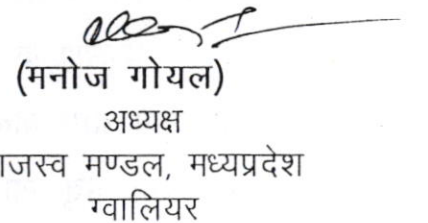 (मनोज गोयल)
अध्यक्ष
ाजस्व मण्डल, मध्यप्रदेश
ग्वालियर